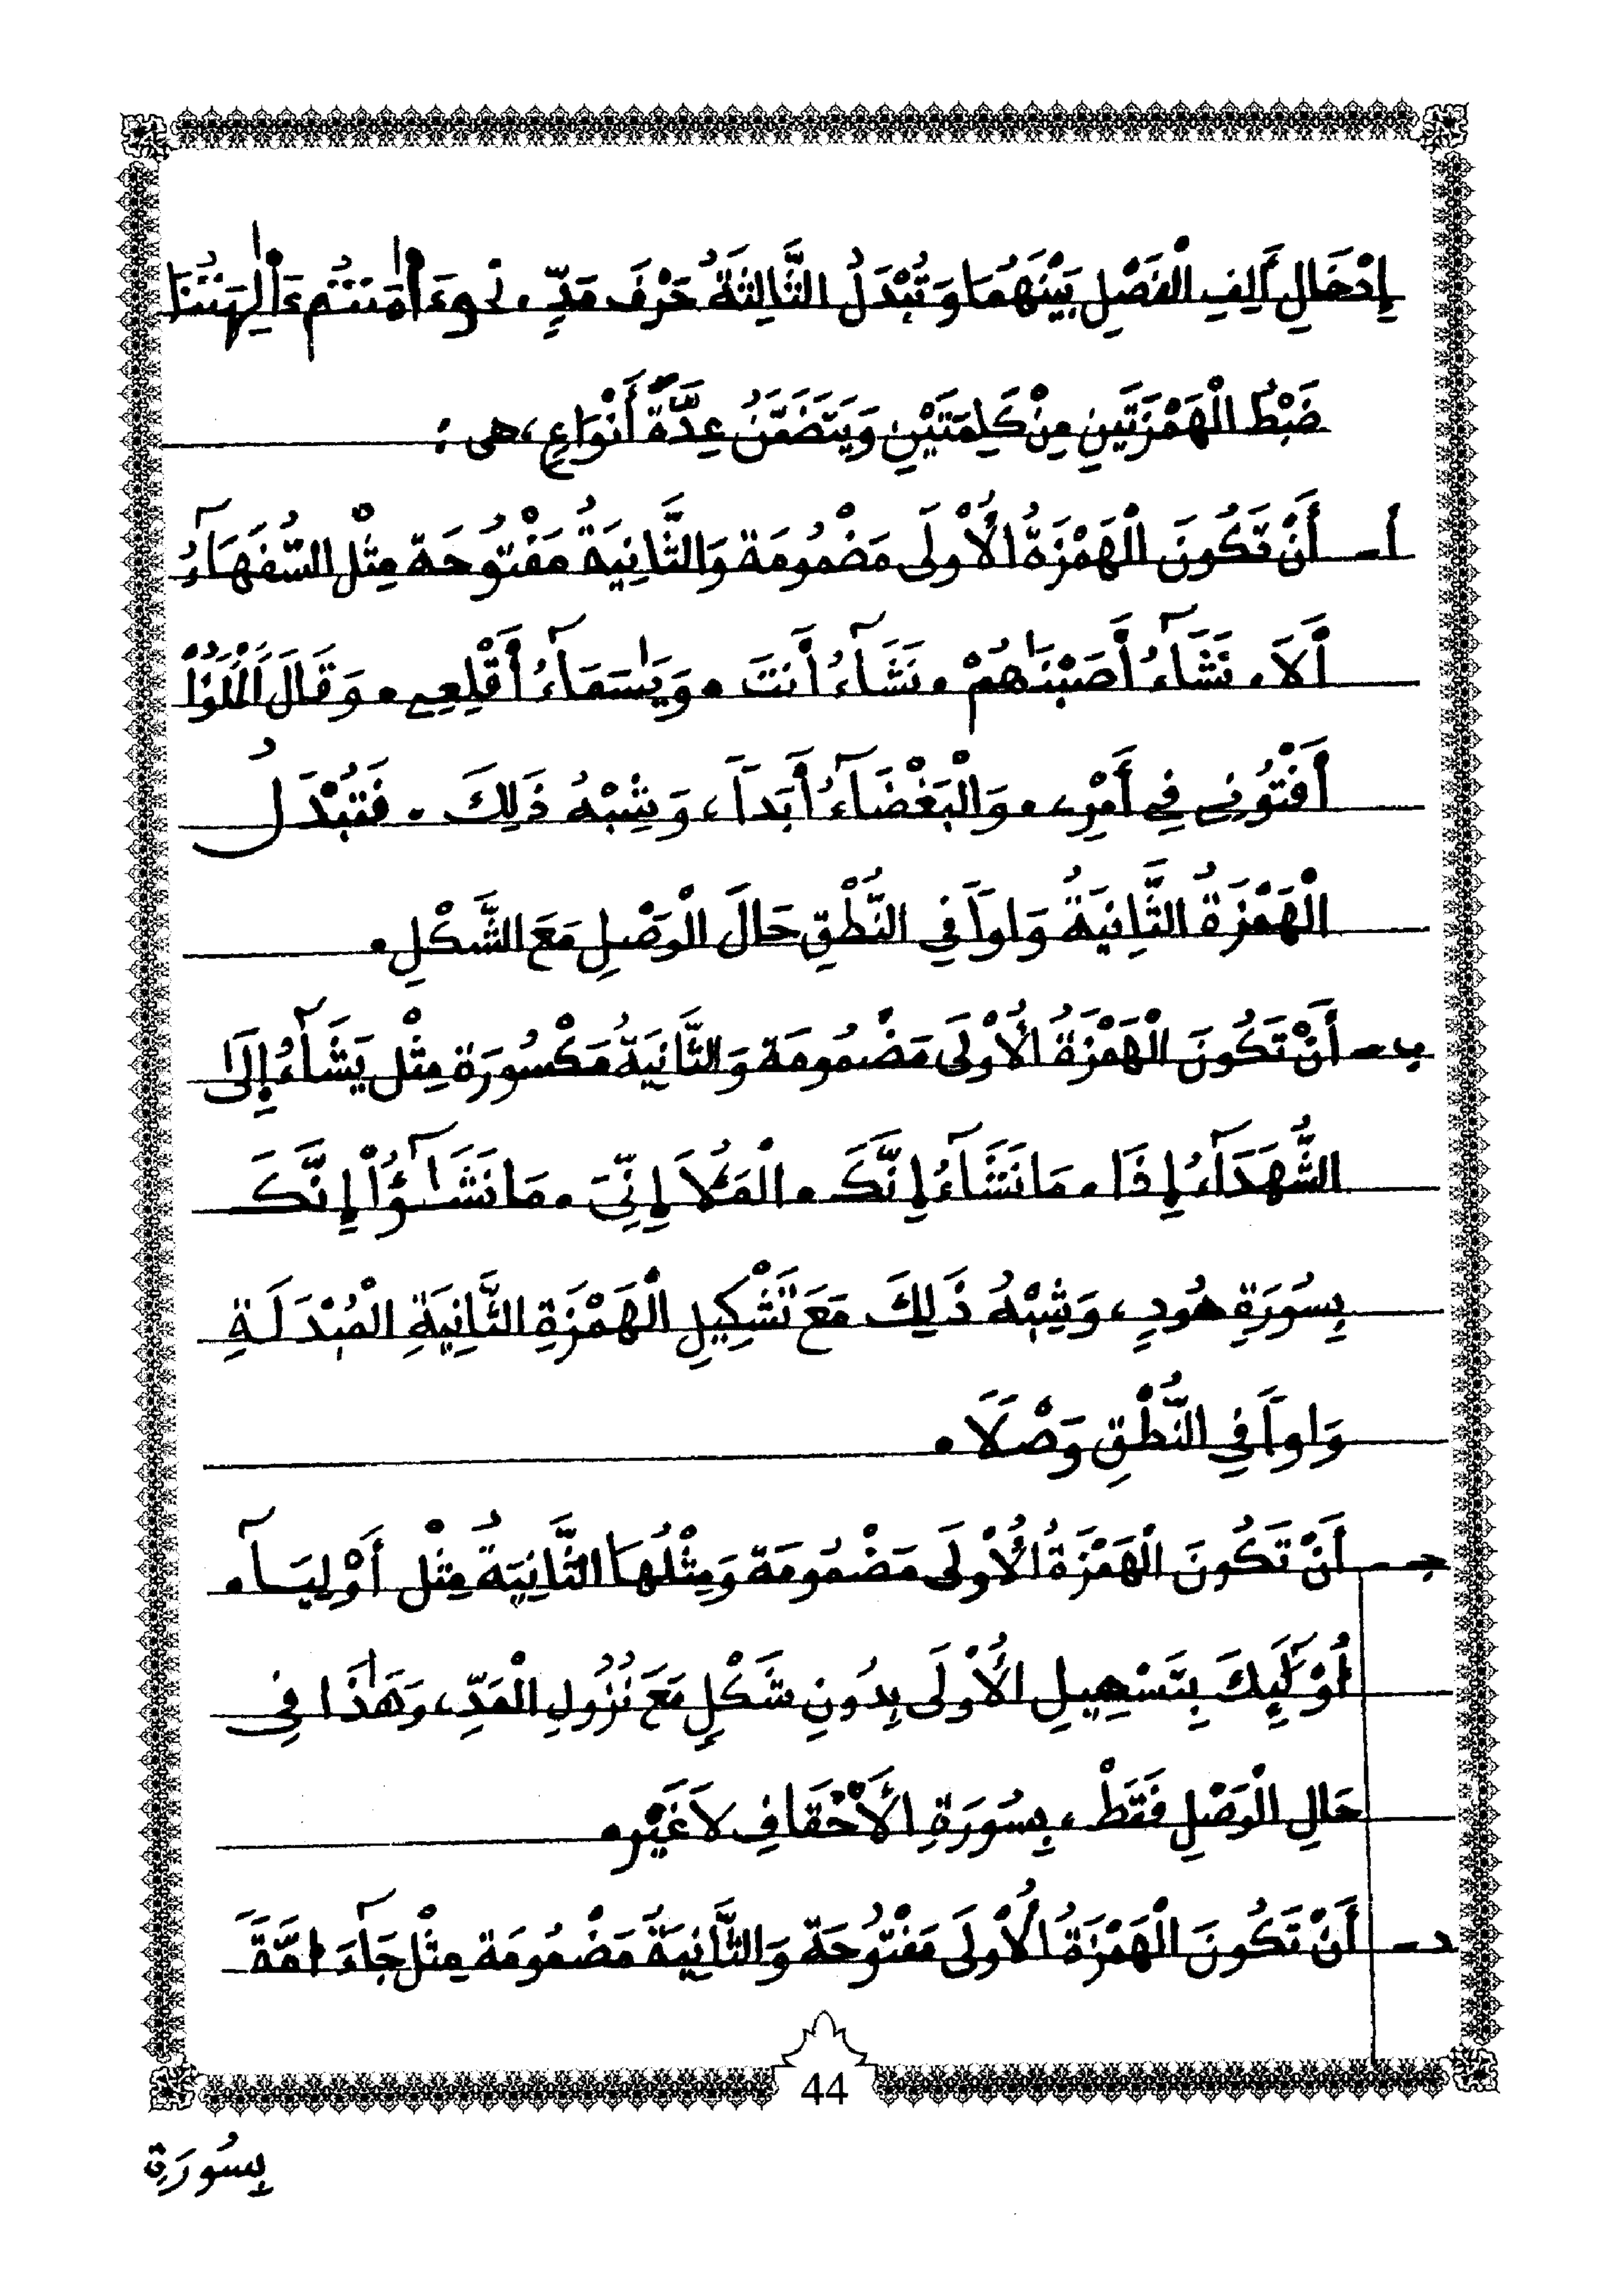 إِدْخَالِ أَلِفِ الْفَصْلِ بَيْنَهُمَا وَتُبْدَلُ الثَّالِثَةُ حَرْفَ مَدٍّ . نحوءَاٰمَنتُم ءَاٰلِهَتُنَا
ضَبْطُ الْهَمْزَتَيْنِ مِنْ كَلِمَتَيْنِ وَيَتَضَمَّنُ عِدَّةَ أَنْوَاعٍ، هى :
أ ـ أَنْ تَكُونَ الْهَمْزَةُ الْأُوْلَى مَضْمُومَة وَالثَّانِيَةُ مَفْتُوحَة مِثْل السُّفَهَآءُ
أَلاَ . نَشَآءُ أَصَبْنَاهُمْ . نَشَآءُ أَنتَ . وَيَٰسَمَآءُ أَقْلِعِے . وَقَالَ الْمَلَؤُاْ
أَفْتُونِے فِے أَمْرِے . وَالْبَغْضَآءُ أَبَداً ، وَشِبْهُ ذَلِكَ . فَتُبْدَلُ
الْهَمْزَةُ الثَّانِيَةُ وَاواً فِي النُّطْقِ حَالَ الْوَصْلِ مَعَ الشَّكْلِ .
ب ـ أَنْ تَكُونَ الْهَمْزَةُ الْأُوْلَى مَضْمُومَة وَالثَّانِيَةُ مَكْسُورَة مِثْل يَشَآءُ إِلَىٰ
الشُّهَدَآءُ إِذَا . مَا نَشَآءُ إِنَّكَ . الْمَلَأُ إِنِّيَ . مَا نَشَـٰٓؤُاْ إِنَّكَ
بِسُورَةِ هُودٍ ، وَشِبْهُ ذَلِكَ مَعَ تَشْكِيلِ الْهَمْزَةِ الثَّانِيَةِ الْمُبْدَلَةِ
وَاواً فِي النُّطْقِ وَصْلاً .
جـ ـ أَنْ تَكُونَ الْهَمْزَةُ الْأُوْلَى مَضْمُومَة وَمِثْلُهَا الثَّانِيَةُ مِثْل أَوْلِيَـآ.
أُوْلَٰٓئِكَ بِتَسْهِيلِ الْأُوْلَى بِدُونِ شَكْلٍ مَعَ نُزُولِ الْمَدِّ ، وَهَٰذَا فِي
حَالِ الْوَصْلِ فَقَطْ ، بِسُورَةِ الْأَحْقَافِ لاَ غَيْر .
د ـ أَنْ تَكُونَ الْهَمْزَةُ الْأُوْلَى مَفْتُوحَة وَالثَّانِيَةُ مَضْمُومَة مِثْل جَآءَ امَّةَ
44
بِسُورَةِ